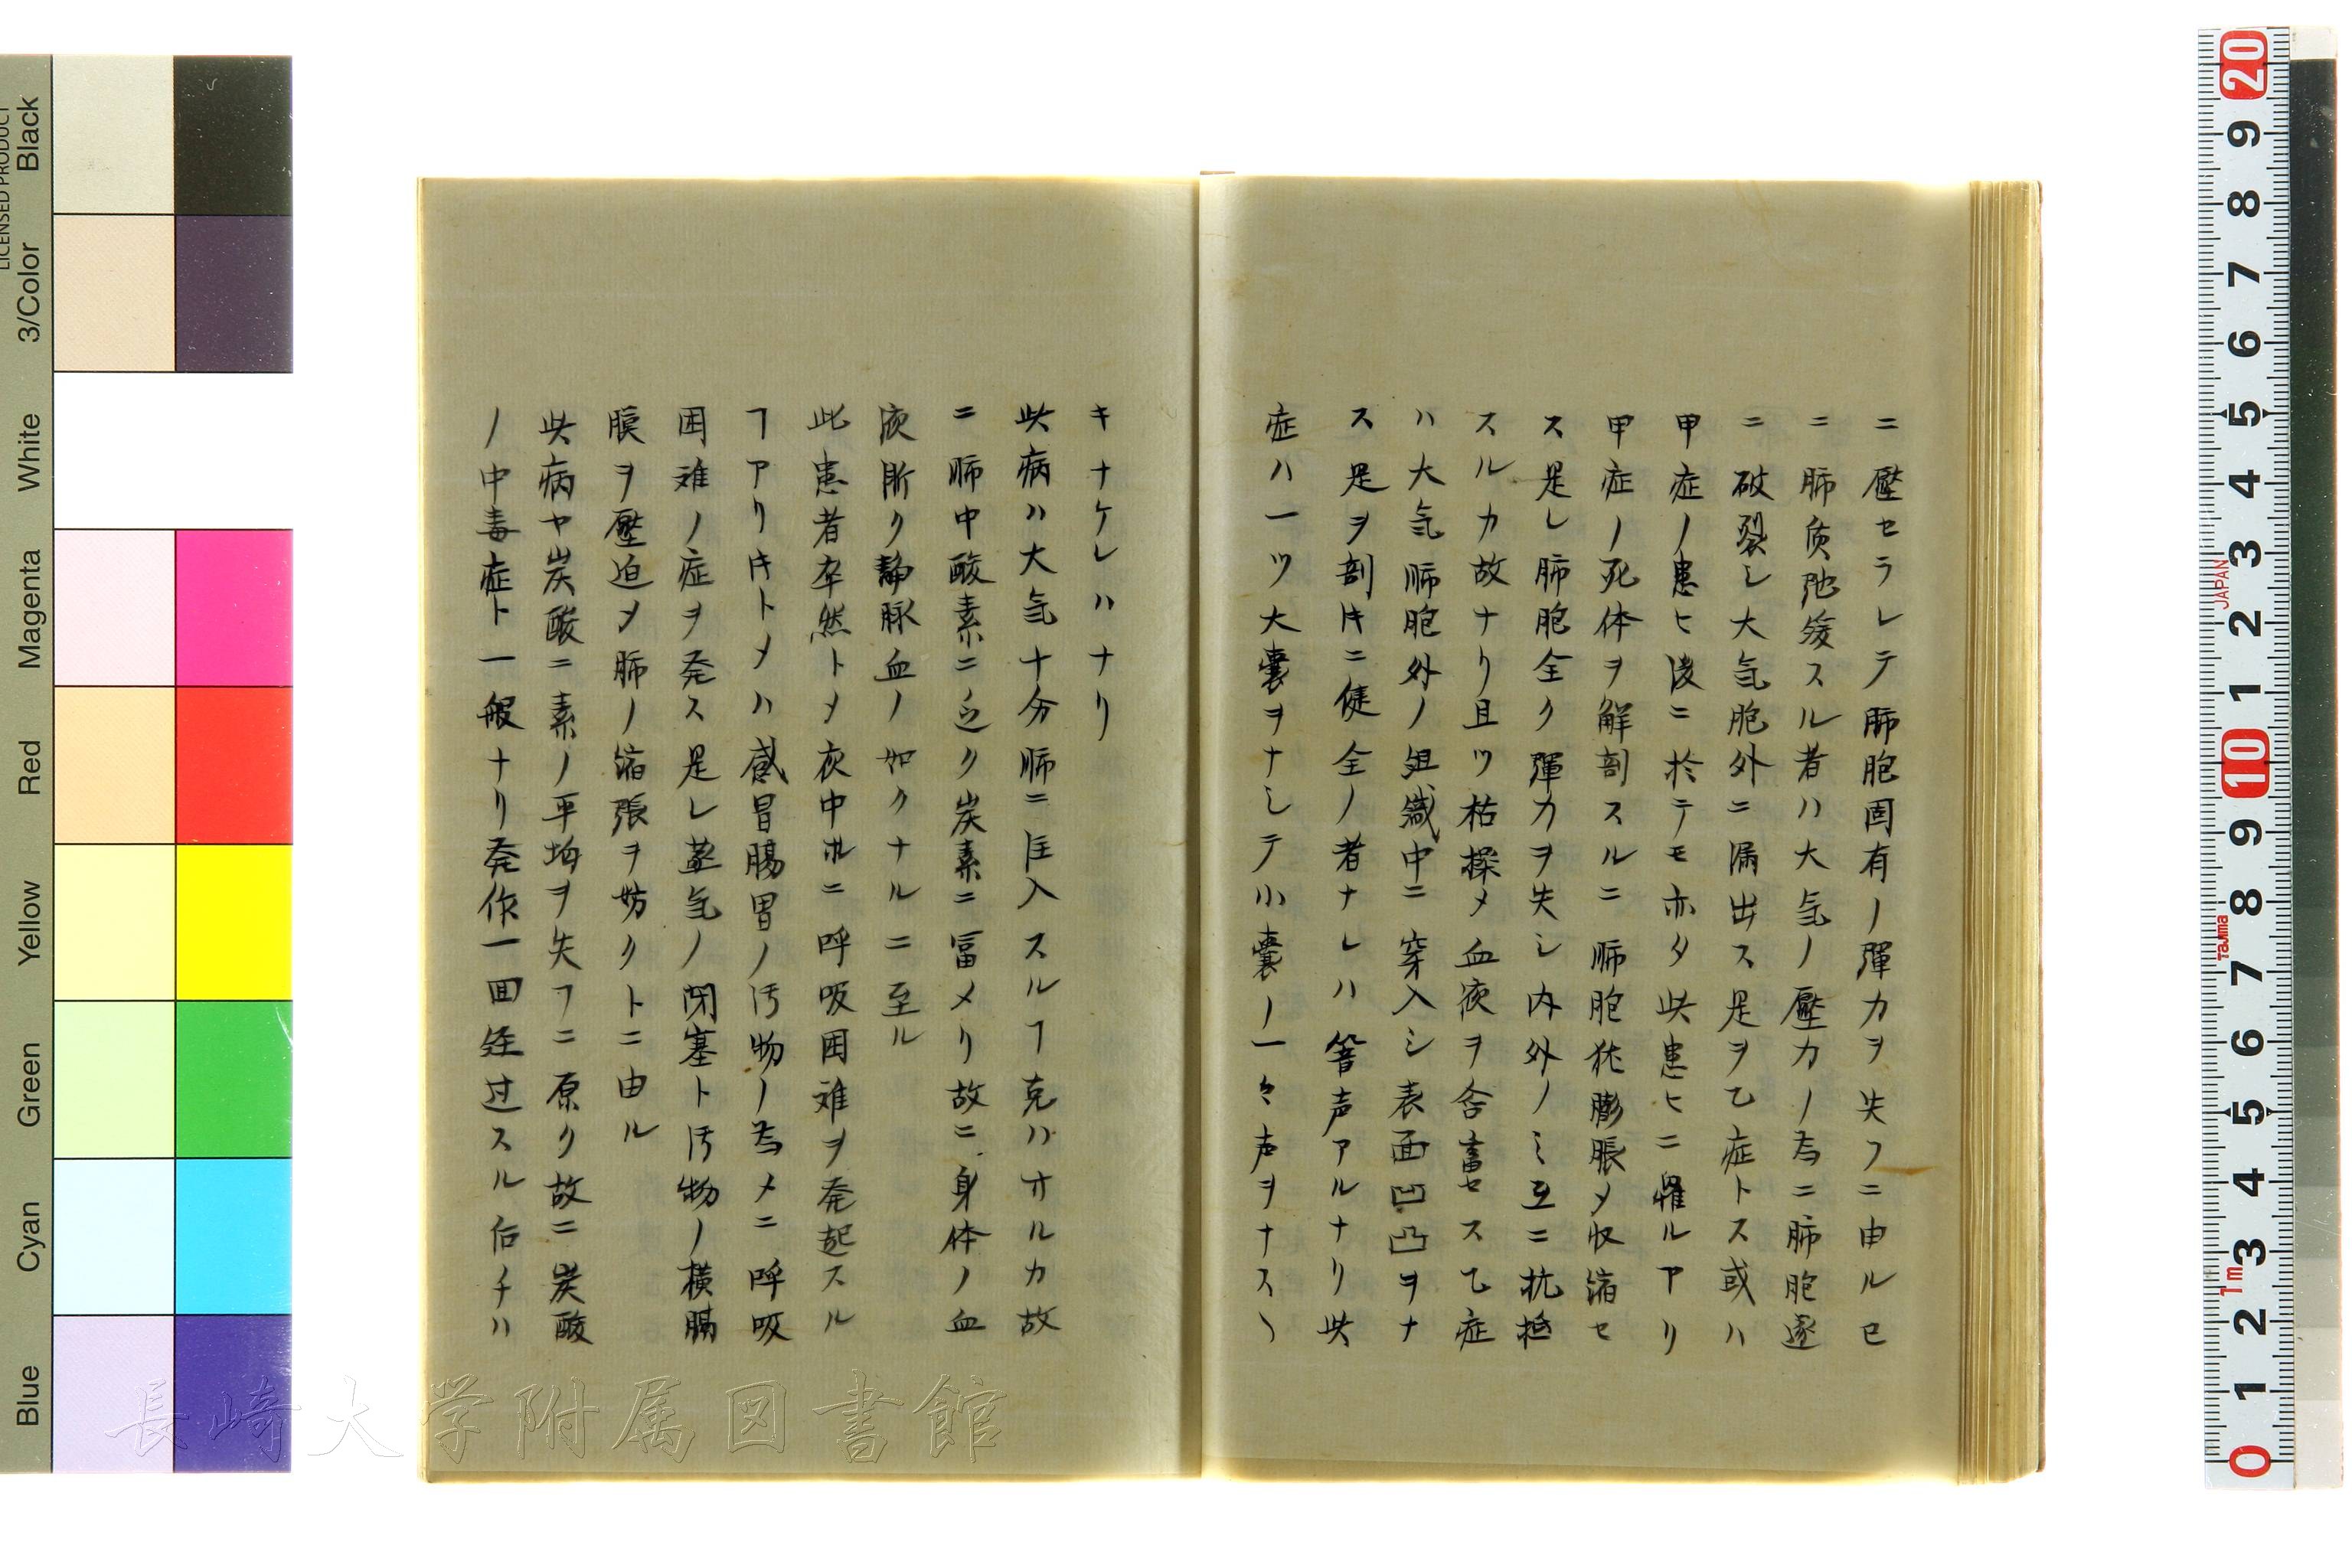 ニ壓セラレテ肺胞固有ノ彈力ヲ失フニ由ル已
ニ肺质弛緩スル者ハ大気ノ壓力ノ為ニ肺胞遂
ニ破裂シ大気胞外ニ漏出ス是ヲ乙症トス或ハ
甲症ノ患ヒ後ニ於テモ亦タ此患ヒニ罹ルアリ
甲症ノ死体ヲ解剖スルニ肺胞犹膨脹〆収縮セ
ス是レ肺胞全ク彈力ヲ失シ内外ノミ互ニ抗抵
スルカ故ナリ且ツ枯燥〆血液ヲ含畜セス乙症
ハ大気肺胞外ノ組織中ニ穿入シ表面凹凸ヲナ
ス是ヲ剖キニ健全ノ者ナレハ響声アルナリ此
症ハ一ツ大嚢ヲナシテ小嚢ノ一々声ヲナス丶
キナケレハナリ
此病ハ大気十分肺ニ注入スルヿ克ハサルカ故
ニ肺中酸素ニ乏ク炭素ニ冨メリ故ニ身体ノ血
液漸ク静脉血ノ如クナルニ至ル
此患者卒然ト〆夜中ニ呼吸困难ヲ発起スル
ヿアリ卜〆ハ感冒腸胃ノ汚物ノ為メニ呼吸
困难ノ症ヲ発ス是レ蒸気ノ閉塞ト汚物ノ横膈
膜ヲ壓迫〆肺ノ縮張ヲ妨クトニ由ル
此病ヤ炭酸ニ素ノ平均ヲ失フニ原ク故ニ炭酸
ノ中毒症ト一般ナリ発作一回経过スル后チハ
Black
3/Color
White
Magenta
Red
Yellow
Green
Cyan
Blue
LICENSED PRODUCT
長崎大学附属図書館
20
9
8
7
6
5
4
3
2
1
10
9
8
7
6
5
4
3
2
1
0
JAPAN
Tajima
1m